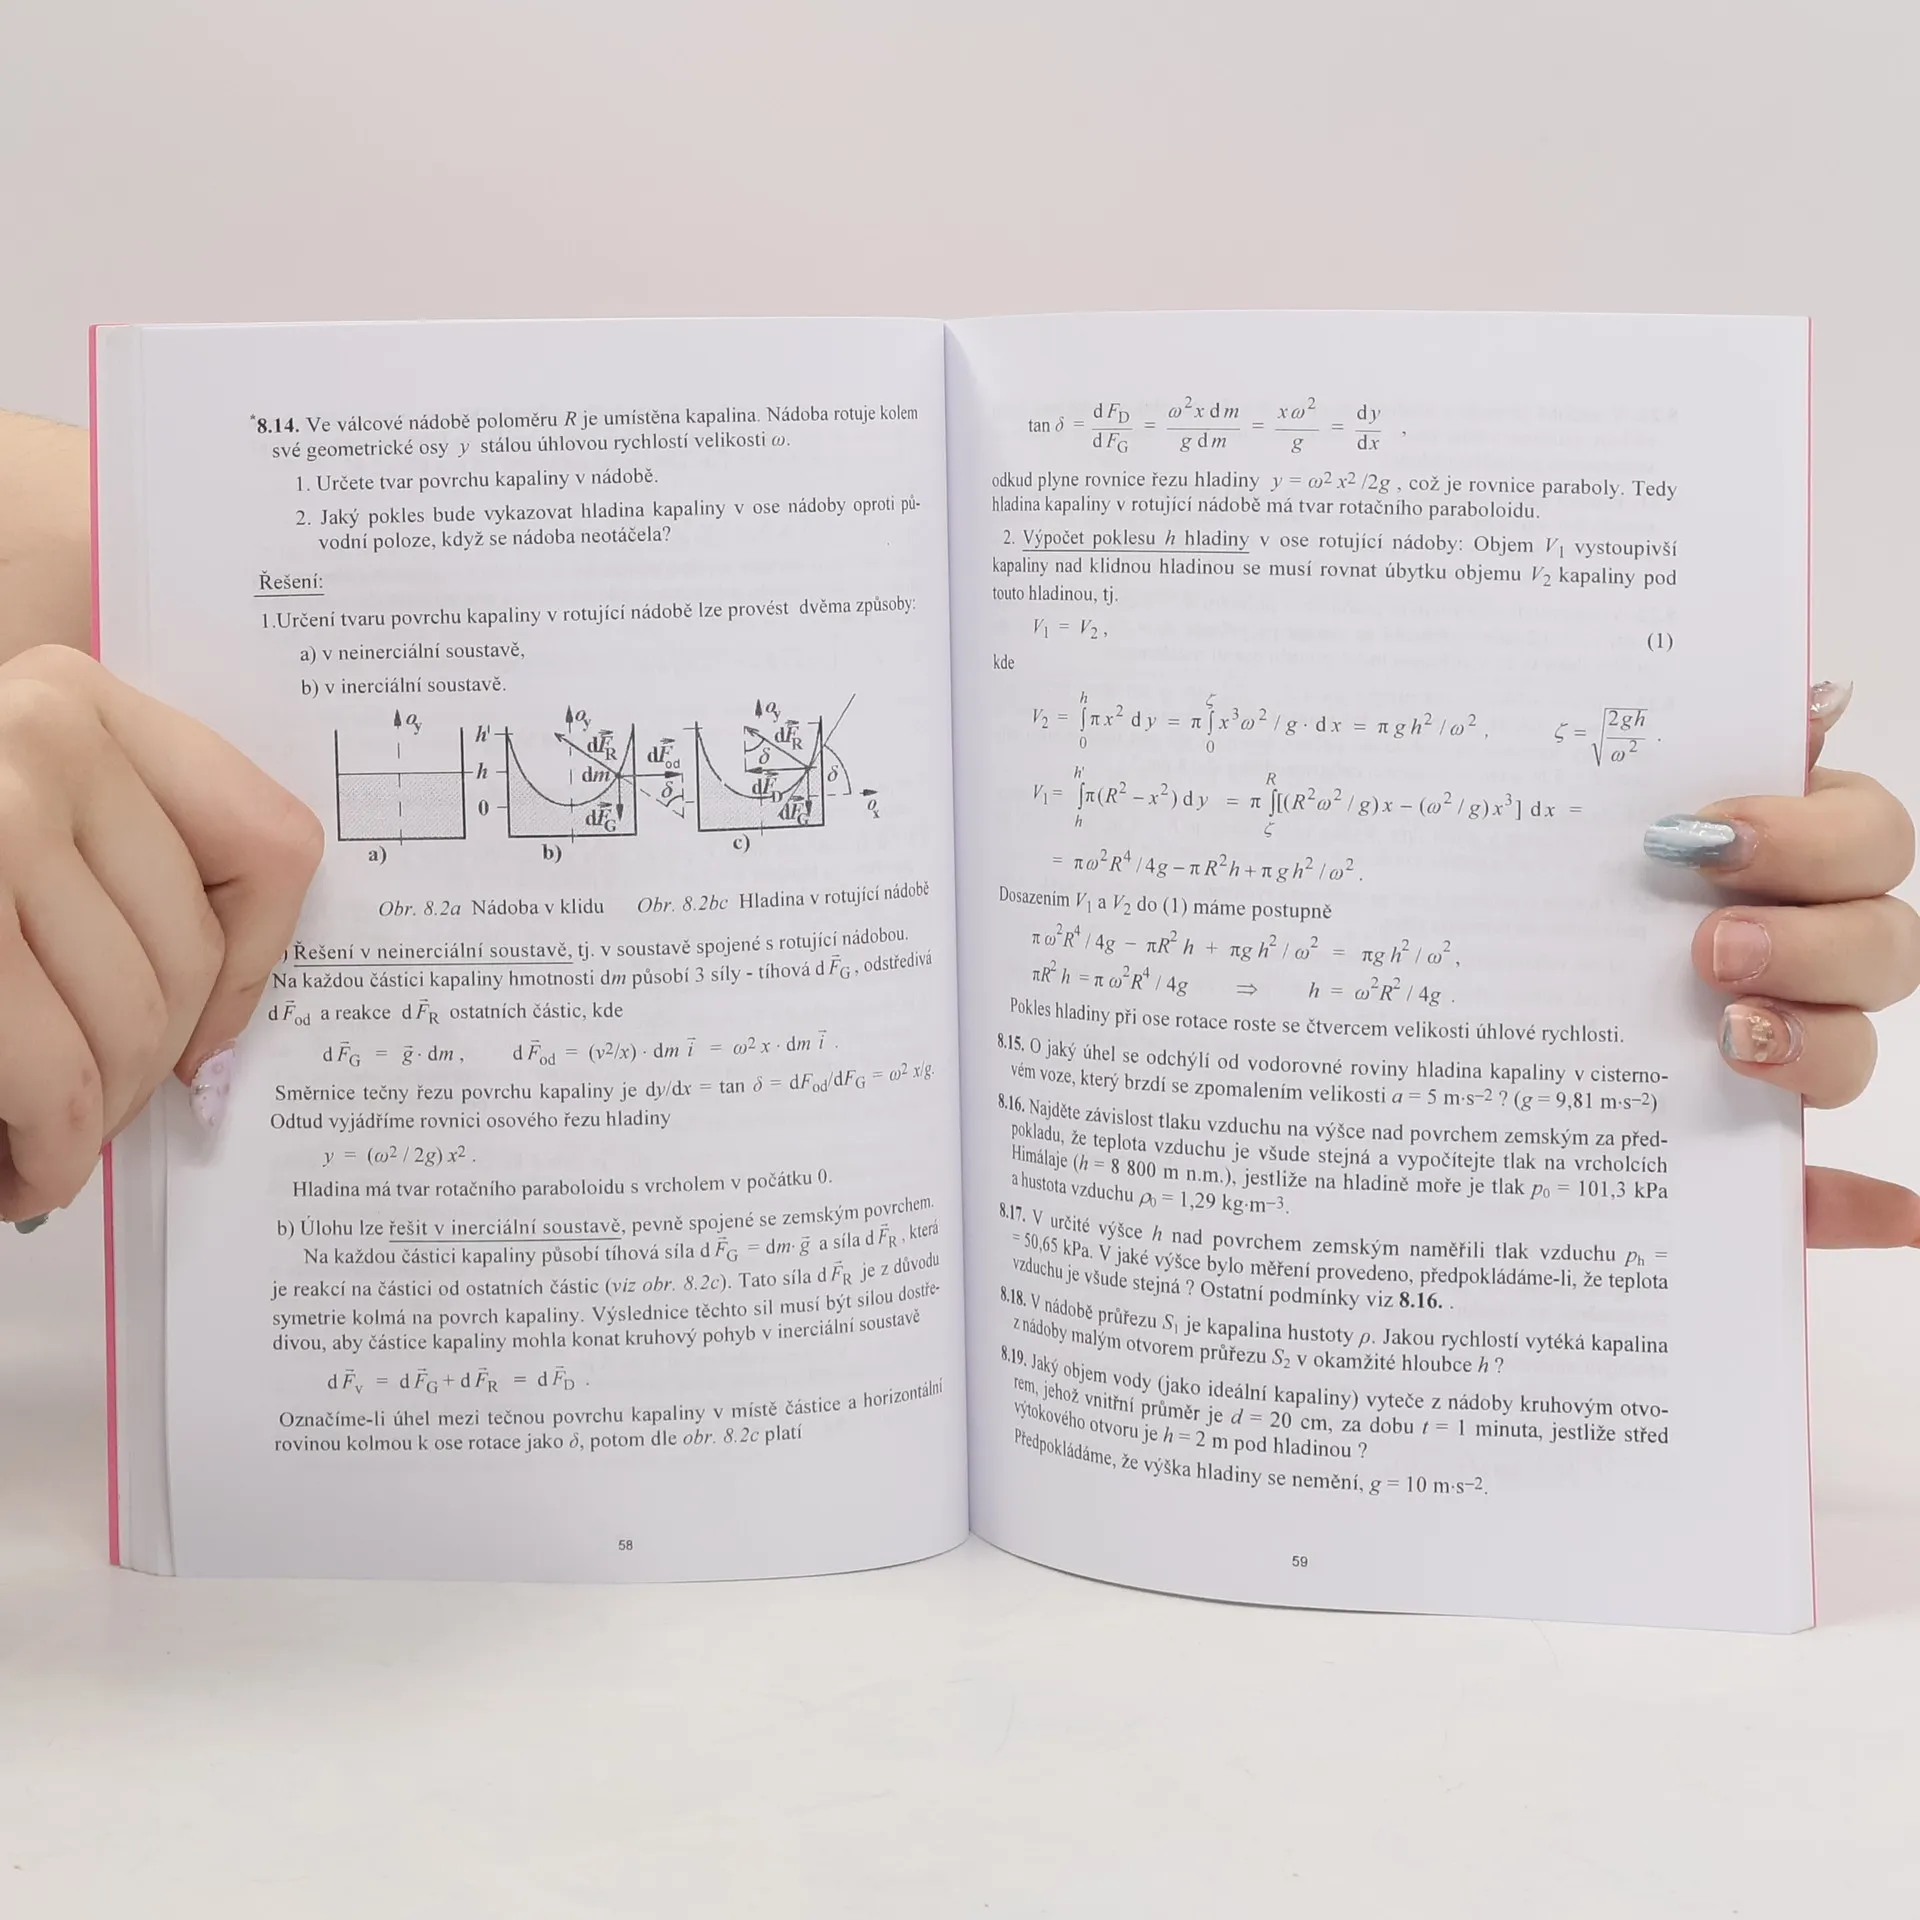 *8.14. Ve válcové nádobě poloměru R je umístěna kapalina. Nádoba rotuje kolem
své geometrické osy y stálou úhlovou rychlostí velikosti ω.
1. Určete tvar povrchu kapaliny v nádobě.
2. Jaký pokles bude vykazovat hladina kapaliny v ose nádoby oproti pů-
vodní poloze, když se nádoba neotáčela?
Řešení:
1.Určení tvaru povrchu kapaliny v rotující nádobě lze provést dvěma způsoby:
a) v neinerciální soustavě,
b) v inerciální soustavě.
o_y h' h 0 o_y dF⃗_R dm dF⃗_od δ dF⃗_G o_y dF⃗_R δ dF⃗_D dF⃗_G δ o_x
a) b) c)
Obr. 8.2a Nádoba v klidu Obr. 8.2bc Hladina v rotující nádobě
) Řešení v neinerciální soustavě, tj. v soustavě spojené s rotující nádobou.
Na každou částici kapaliny hmotnosti dm působí 3 síly - tíhová d F⃗_G, odstředivá
d F⃗_od a reakce d F⃗_R ostatních částic, kde
d F⃗_G = g⃗ · dm , d F⃗_od = (v²/x) · dm i⃗ = ω² x · dm i⃗ .
Směrnice tečny řezu povrchu kapaliny je dy/dx = tan δ = dF_od/dF_G = ω² x/g.
Odtud vyjádříme rovnici osového řezu hladiny
y = (ω² / 2g) x² .
Hladina má tvar rotačního paraboloidu s vrcholem v počátku 0.
b) Úlohu lze řešit v inerciální soustavě, pevně spojené se zemským povrchem.
Na každou částici kapaliny působí tíhová síla d F⃗_G = dm· g⃗ a síla d F⃗_R , která
je reakcí na částici od ostatních částic (viz obr. 8.2c). Tato síla d F⃗_R je z důvodu
symetrie kolmá na povrch kapaliny. Výslednice těchto sil musí být silou dostře-
divou, aby částice kapaliny mohla konat kruhový pohyb v inerciální soustavě
d F⃗_v = d F⃗_G + d F⃗_R = d F⃗_D .
Označíme-li úhel mezi tečnou povrchu kapaliny v místě částice a horizontální
rovinou kolmou k ose rotace jako δ, potom dle obr. 8.2c platí
58
tan δ = d F_D / d F_G = ω² x d m / g d m = x ω² / g = dy / dx ,
odkud plyne rovnice řezu hladiny y = ω² x² /2g , což je rovnice paraboly. Tedy
hladina kapaliny v rotující nádobě má tvar rotačního paraboloidu.
2. Výpočet poklesu h hladiny v ose rotující nádoby: Objem V₁ vystoupivší
kapaliny nad klidnou hladinou se musí rovnat úbytku objemu V₂ kapaliny pod
touto hladinou, tj.
V₁ = V₂ , (1)
kde
V₂ = ∫₀^h π x² d y = π ∫₀^ζ x³ ω² / g · d x = π g h² / ω² , ζ = √(2gh / ω²) .
V₁ = ∫_h^h' π(R² – x²) d y = π ∫_ζ^R [(R² ω² / g) x – (ω² / g) x³] d x =
= π ω² R⁴ / 4g – π R² h + π g h² / ω² .
Dosazením V₁ a V₂ do (1) máme postupně
π ω² R⁴ / 4g – πR² h + πg h² / ω² = πg h² / ω² ,
πR² h = π ω² R⁴ / 4g ⇒ h = ω² R² / 4g .
Pokles hladiny při ose rotace roste se čtvercem velikosti úhlové rychlosti.
8.15. O jaký úhel se odchýlí od vodorovné roviny hladina kapaliny v cisterno-
vém voze, který brzdí se zpomalením velikosti a = 5 m·s⁻² ? (g = 9,81 m·s⁻²)
8.16. Najděte závislost tlaku vzduchu na výšce nad povrchem zemským za před-
pokladu, že teplota vzduchu je všude stejná a vypočítejte tlak na vrcholcích
Himálaje (h = 8 800 m n.m.), jestliže na hladině moře je tlak p₀ = 101,3 kPa
a hustota vzduchu ρ₀ = 1,29 kg·m⁻³.
8.17. V určité výšce h nad povrchem zemským naměřili tlak vzduchu p_h =
= 50,65 kPa. V jaké výšce bylo měření provedeno, předpokládáme-li, že teplota
vzduchu je všude stejná ? Ostatní podmínky viz 8.16. .
8.18. V nádobě průřezu S₁ je kapalina hustoty ρ. Jakou rychlostí vytéká kapalina
z nádoby malým otvorem průřezu S₂ v okamžité hloubce h ?
8.19. Jaký objem vody (jako ideální kapaliny) vyteče z nádoby kruhovým otvo-
rem, jehož vnitřní průměr je d = 20 cm, za dobu t = 1 minuta, jestliže střed
výtokového otvoru je h = 2 m pod hladinou ?
Předpokládáme, že výška hladiny se nemění, g = 10 m·s⁻².
59